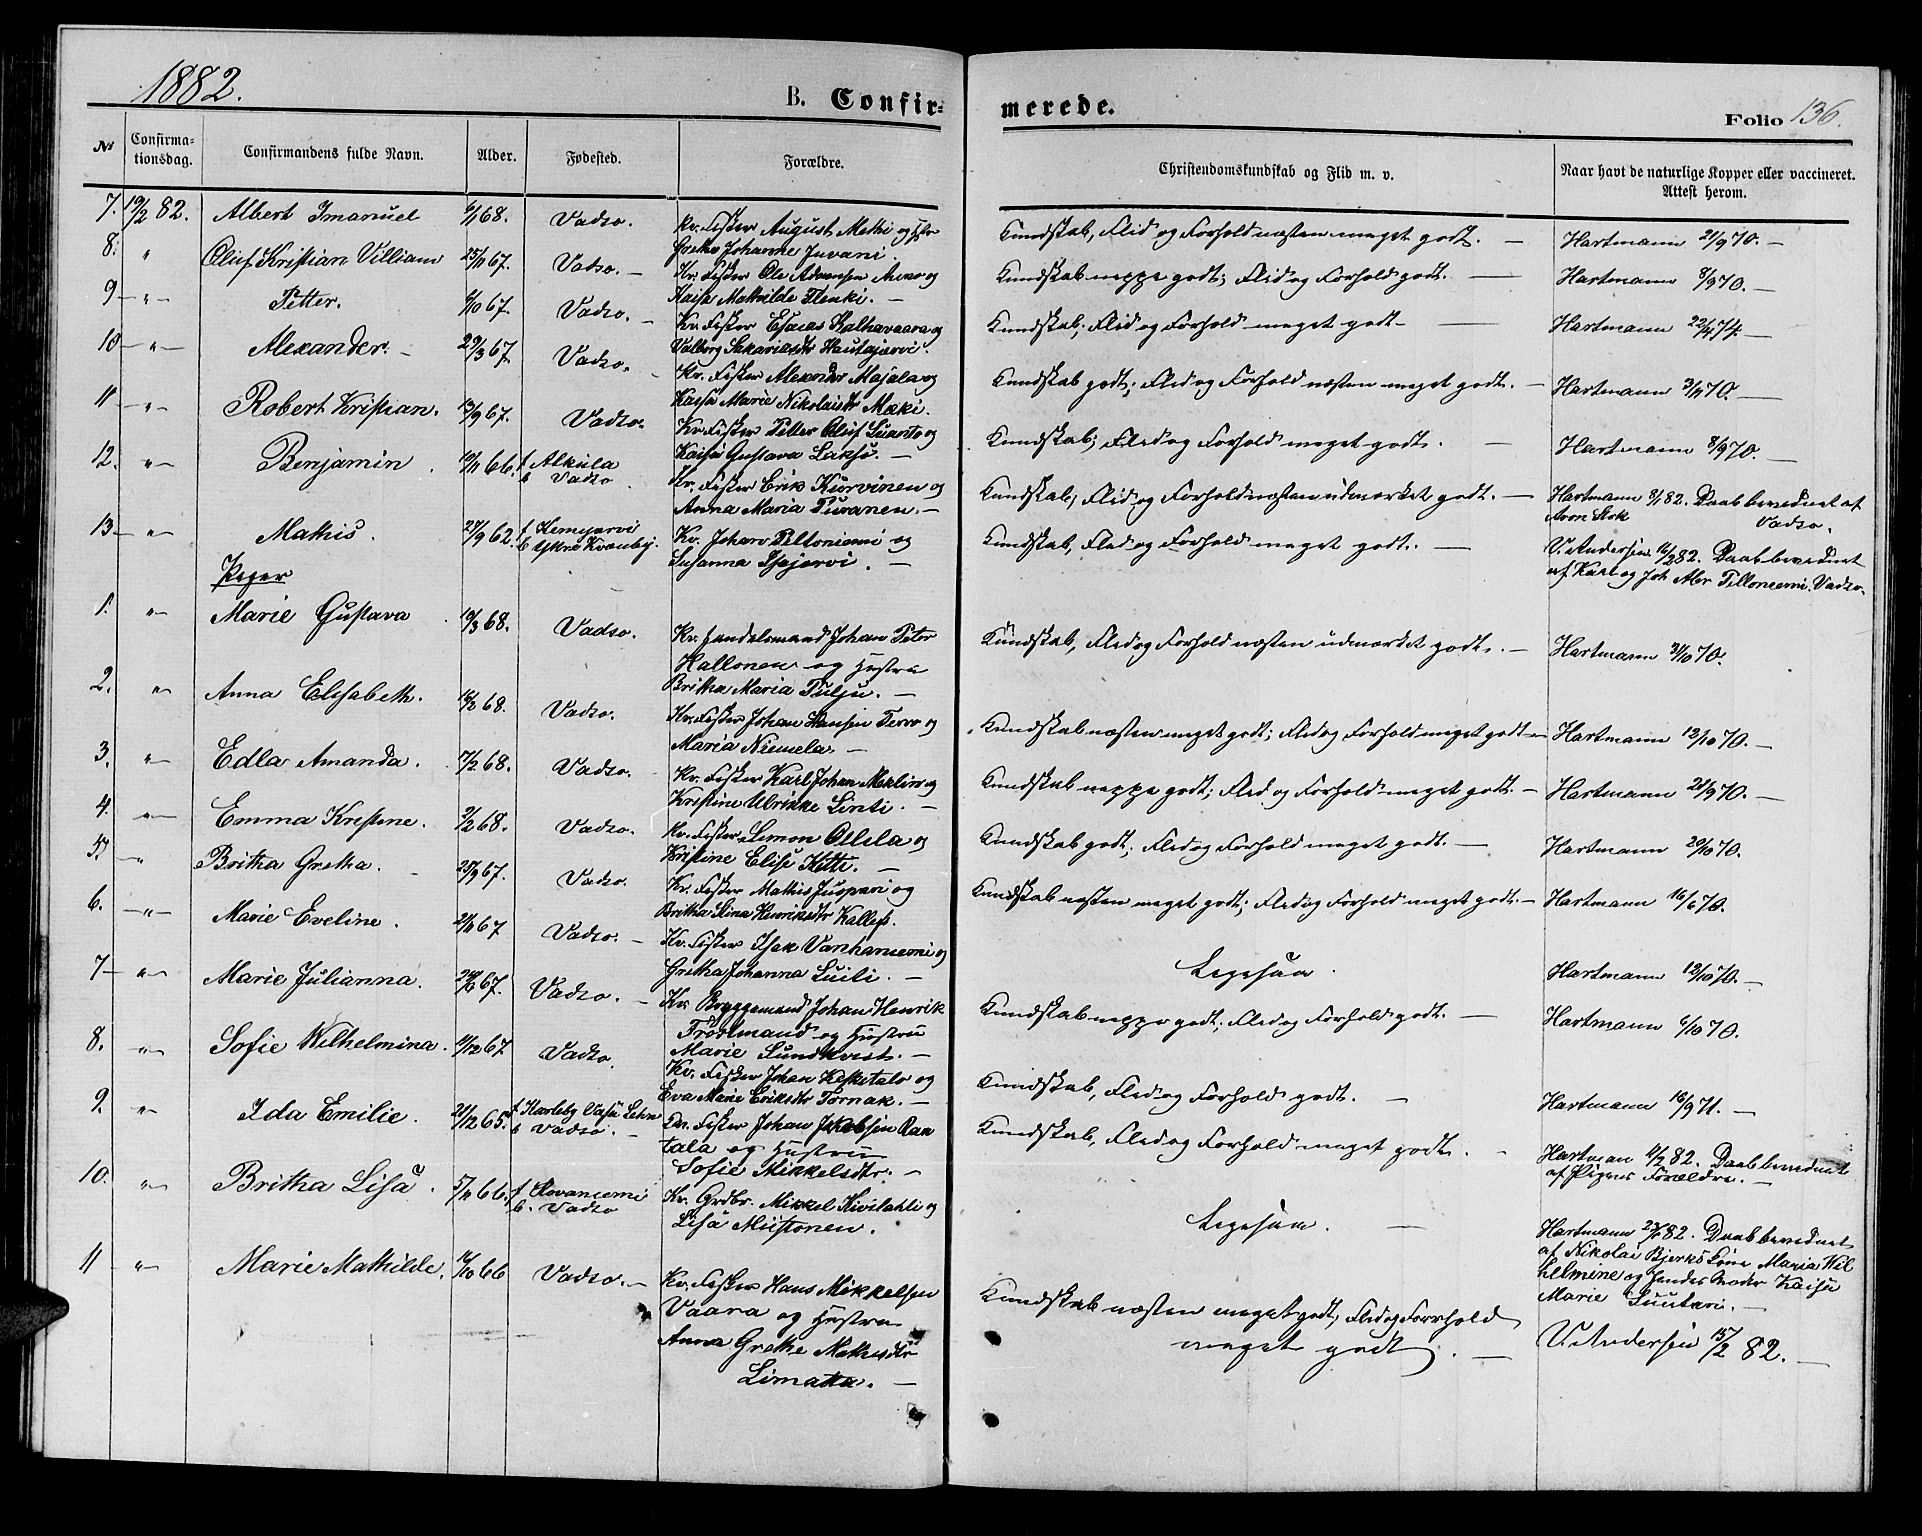 1882.
B. Confir=
merede.
Folio 136.
№
Confirma-
tionsdag.
Confirmandens fulde Navn.
Alder.
Fødested.
Forældre.
Christendomskundskab og Flid m. v.
Naar havt de naturlige Kopper eller vaccineret.
Attest herom.
7. 19/2 82. Albert Imanuel 6/1 68. Vadsø. Kv. Fisker August Mathi og Hstr
Grethe Johanne Juvani. Kundskab, Flid og Forhold næsten meget godt. — Hartmann 21/9 70. —
8. " Oluf Kristian Villiam 25/11 67. Vadsø. — Kv. Fisker Ole og
Kaisa Mathilde Flenki. — Kundskab neppe godt; Flid og Forhold godt. — Hartmann 8/9 70. —
9 — " — Petter. 6/10 67. Vadsø. — Kv. Fisker Esaias Kalhavaara og
Valborg Sakariasdtr Hautajærvi. Kundskab, Flid og Forhold meget godt — Hartmann 22/4 74. —
10 — " — Alexander. — 29/3 67. Vadsø. Kv. Fisker Alexander Majala og
Kaisa Marie Nikolaidtr Mæki. Kundskab godt; Flid og Forhold næsten meget godt. — Hartmann 3/11 70. —
11 — " — Robert Kristian. 13/9 67. Vadsø. Kv. Fisker Petter Oluf og
Kaisa Gustava Lakso. — Kundskab, Flid og Forhold meget godt. — Hartmann 8/9 70. —
12. " Benjamin. 19/11 66. f Alkula
b Vadsø. Kv. Fisker Erik Kurvinen og
Anna Maria Puranen. — Kundskab, Flid og Forhold næsten udmærket godt. — Hartmann 3/1 82. Daab bevidnet af
Aron Vadsø.
13 — " Mathis. 27/9 62. f Kemijærvi
b Ytre Kvænby. Kv. Johan Peltoniemi og
Susanna Isajærvi. — Kundskab, Flid og Forhold meget godt. — V. Andersen 16/2 82. Daab bevidnet
af Karl og Joh. Abr Vadsø.
Piger
1. " Marie Gustava 10/3 68. Vadsø. Kv. Handelsmand Johan Peter
Hallonen og Hustru
Britha Maria Pulju. — Kundskab, Flid og Forhold næsten udmærket godt. — Hartmann 31/10 70.
2. " Anna Elisabeth. 16/2 68. Vadsø. Kv. Fisker Johan Hansen og
Maria Niemela. — Kundskab næsten meget godt; Flid og Forhold meget godt — Hartmann 12/10 70. —
3. " Edla Amanda. 7/2 68. Vadsø. Kv. Fisker Karl Johan og
Kristine Ulrikke Linti. — Kundskab neppe godt; Flid og Forhold meget godt. — Hartmann 21/9 70. —
4. " Emma Kristine. 2/2 68. Vadsø. Kv. Fisker Simon Ollila og
Kristine Elisa Kitti. — Kundskab godt; Flid og Forhold meget godt. — Hartmann 20/10 70.
5. — " Britha Gretha. — 25/9 67. Vadsø. Kv. Fisker Mathis og
Britha Stina Henriksdtr Kundskab næsten meget godt; Flid og Forhold meget godt. — Hartmann 16/6 70.
6. — " — Marie Eveline. 21/11 67 Vadsø. — Kv. Fisker Isak Vanhaniemi og
Gretha Johanna — Ligesaa. Hartmann 12/10 70. —
7 — " — Marie Julianna. 24/6 67. Vadsø. — Kv. Bryggemand Johan Henrik
og Hustru
Marie Sundkvist. — Kundskab neppe godt; Flid og Forhold godt. — Hartmann 6/10 70.
8. " Sofie Wilhelmina. 9/12 67 Vadsø. Kv. Fisker Johan Kesketalo og
Eva Marie Eriksdtr Tornæk. — Kundskab, Flid og Forhold godt. — Hartmann 16/9 71. —
9. " Ida Emilie. 21/12 65. f Karleby Vasa Lehn
b Vadsø. — Kv. Fisker Johan Jakobsen Ran
tala og Hustru
Sofie Mikkelsdtr. — Kundskab, Flid og Forhold meget godt. — Hartman 11/2 82. Daab bevidnet
af Pigens Forældre. —
10. " Britha Lisa. 5/11 66. f. Rovaniemi
b. Vadsø Kv. Grdbr. Mikkel Kivilahti og
Lisa Mustonen. Ligesaa. — Hartmann 82. Daab bevidnet
af Nikolai Bjerks Kone Maria Wil
helmine og hendes Moder Kaisa
Marie —
11 " Marie Mathilde. 16/10 66 Vadsø. — Kv. Fisker Hans Mikkelsen
Vaara og Hustru
Anna Grethe Mathisdtr
Limatta. — Kundskab næsten meget godt, Flid og Forhold
meget godt. — V. Andersen 15/2 82. —